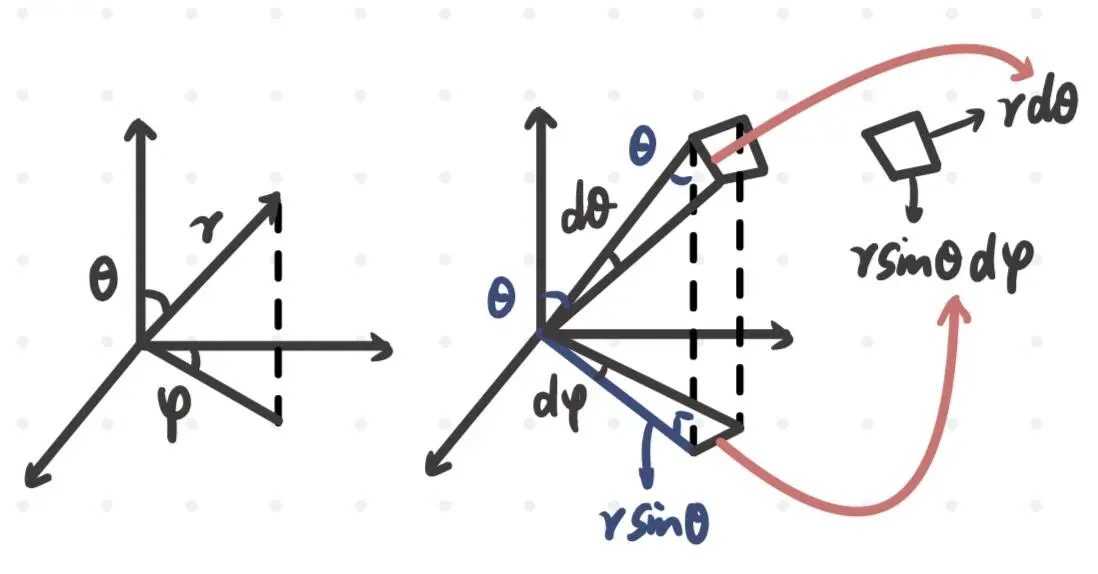 r
θ
φ
θ
dθ
θ
dφ
r sinθ
rdθ
r sinθ dφ